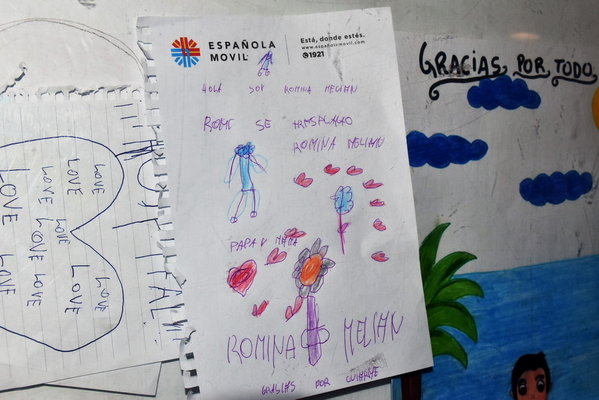 ESPAÑOLA
MOVIL
Está, donde estés.
www.espanolamovil.com
1921
HOLA SOY ROMINA MELIAN
ROMI SE TRASPLANTO
ROMINA MELIAN
PAPA Y MAMA
ROMINA MELIAN
GRACIAS POR CUIDARME
GRACIAS POR TODO
LOVE
LOVE
LOVE LOVE LOVE
LOVE
LOVE
LOVE
LOVE
LOVE
HOSPITAL